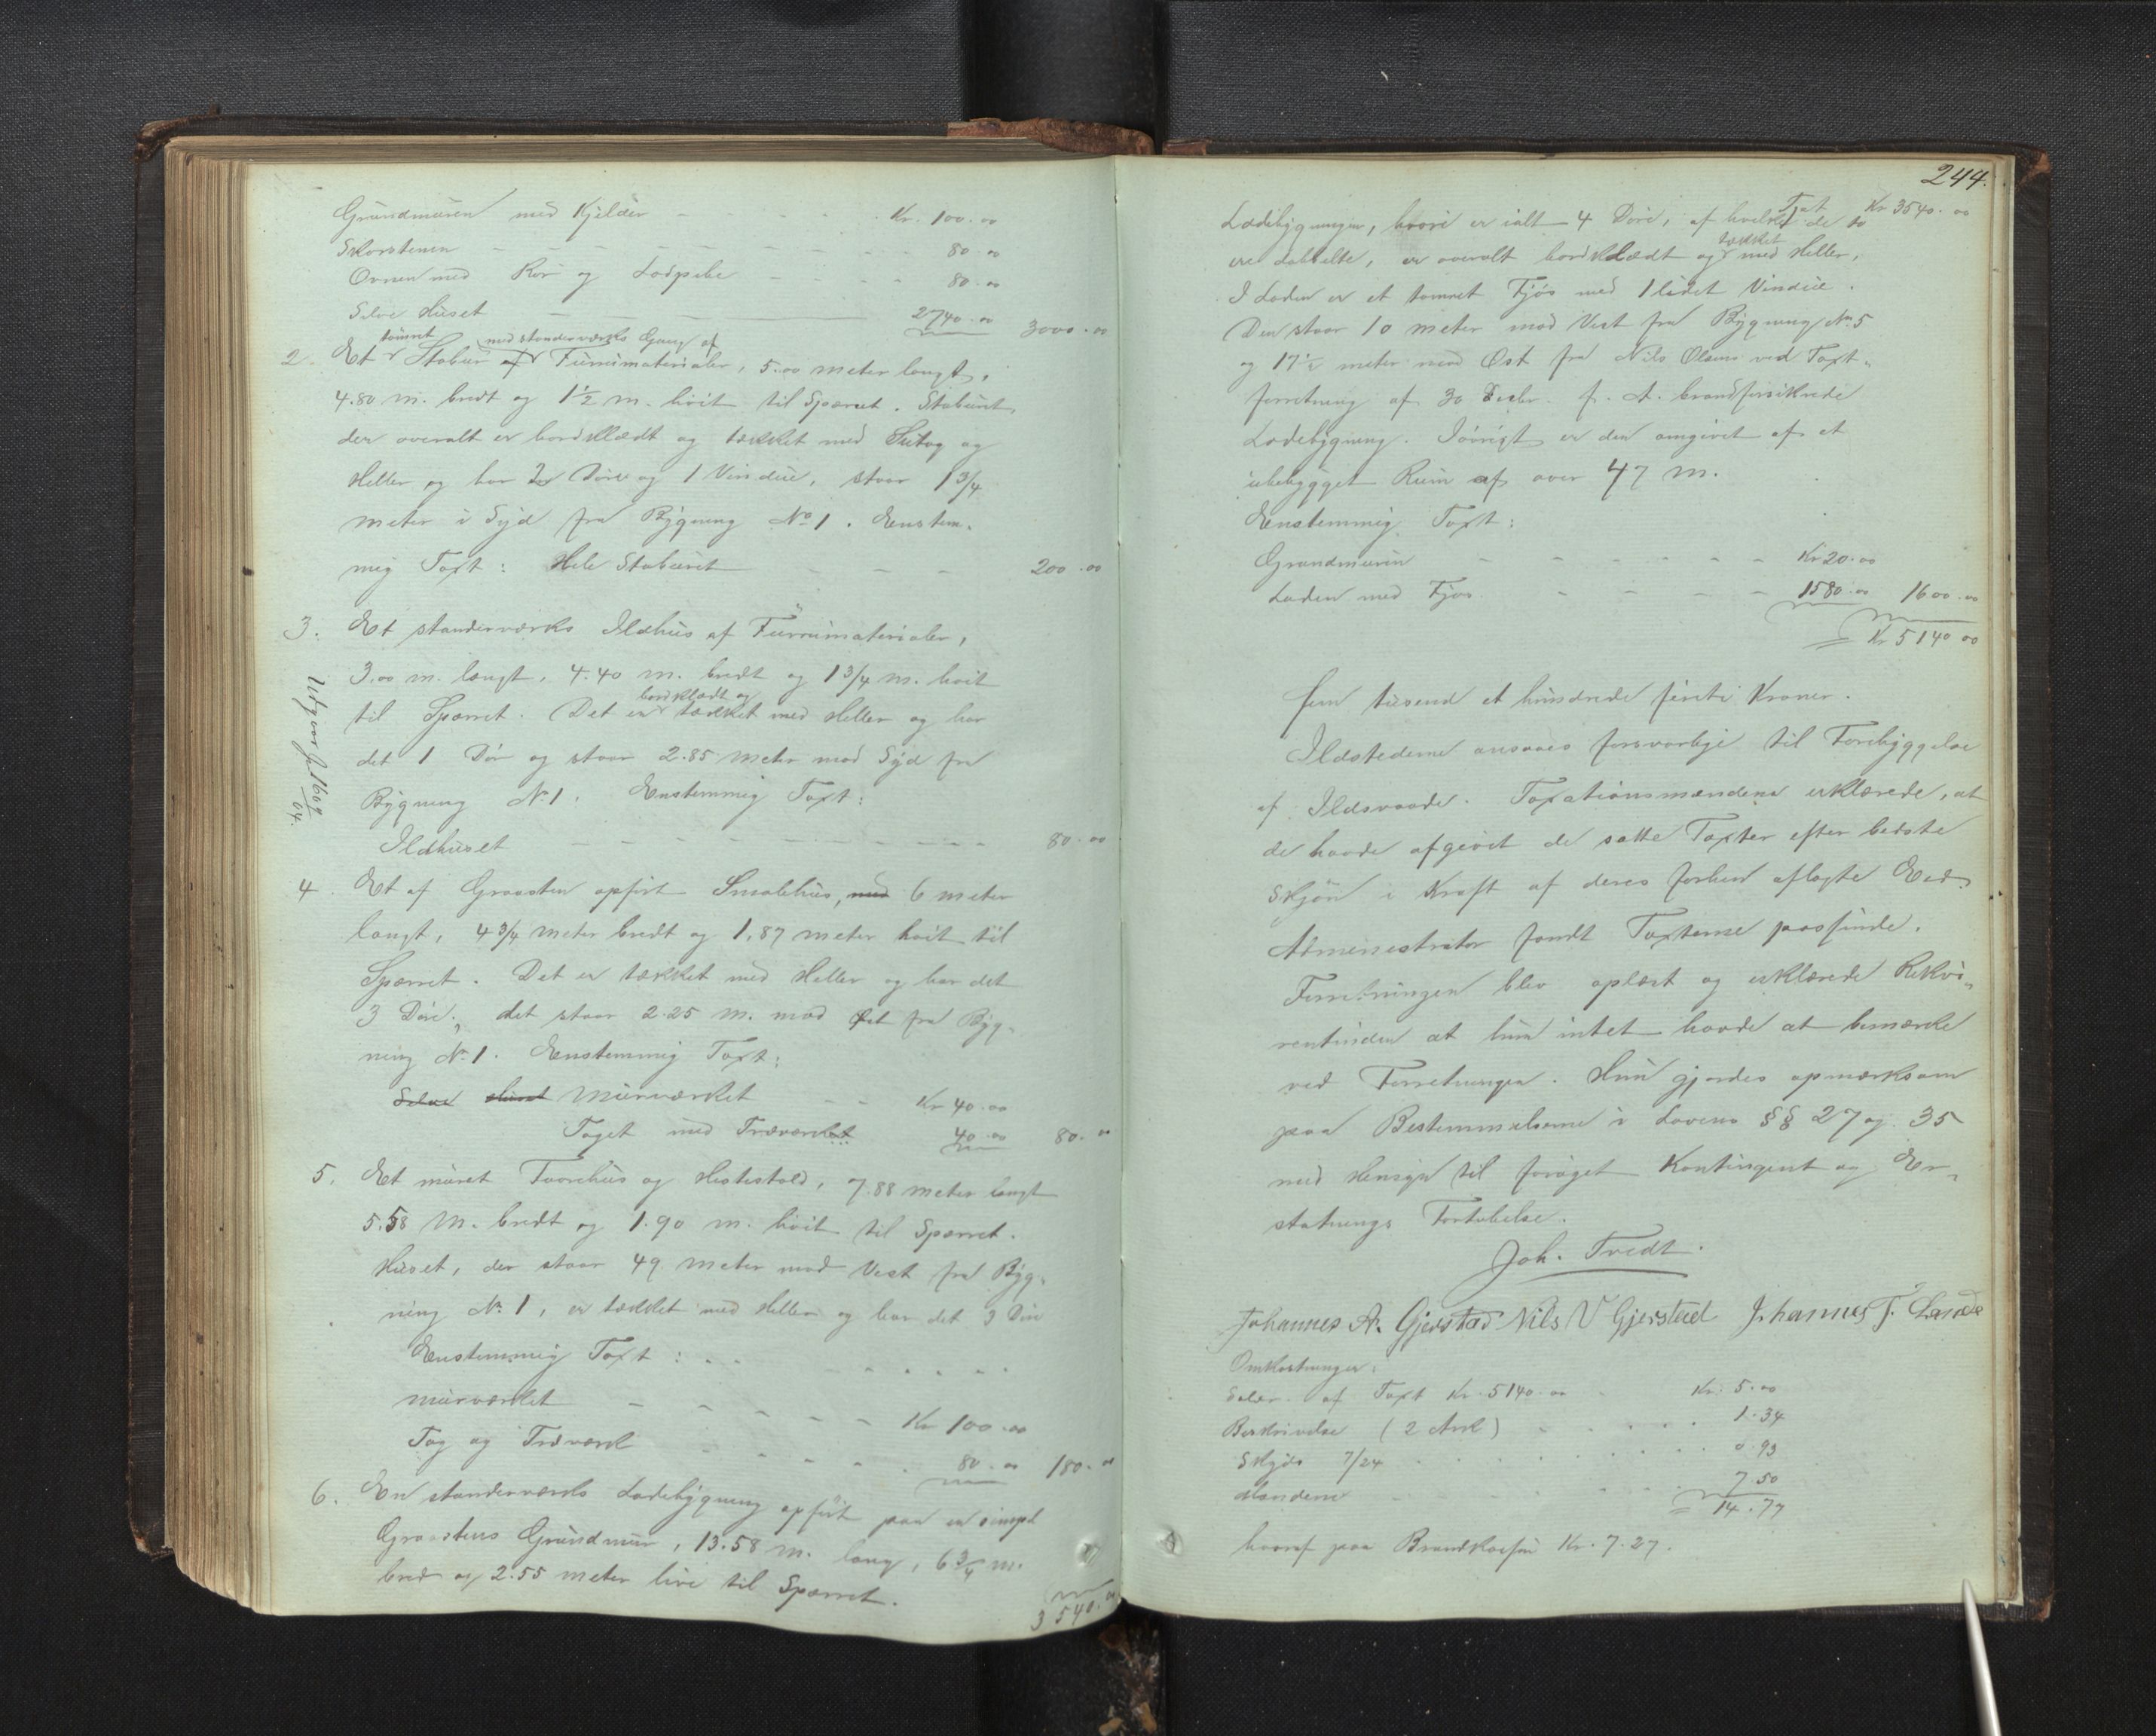 Grundmuren med Kjelder - - - - - Kr. 100.00
Skorstenen - - - - - - - 80.00
Ovnen med Rör og Lodpibe - - - - 80.00
Selve Huset - - - 2740.00 3000.00
tömret med standerværks Gang af
2. Et Stabur af Furumaterialer, 5.00 meter langt,
4.80 m. bredt og 1½ m. höit til Sparret. Staburet
der overalt er bordklædt og tækket med Sutag og
Heller og har 2 Döre og 1 Vindue, staar 1¾
meter i Syd fra Bygning No 1. Enstem-
mig Taxt: Hele Staburet - - - 200.00
3. Et standerværks Ildhus af Furrumaterialer,
3.00 m. langt, 4.40 m. bredt og 1¾ m. höit
bordklædt og
til Sparret. Det er tækket med Heller og har
det 1 Dör og staar 2.85 meter mod Syd fra
Bygning No 1. Enstemmig Taxt:
Ildhuset - - - - - - - - 80.00
Utgaar
04.
4. Et af Graasten opfört Smalehus, med 6 meter
langt, 4¾ meter bredt og 1,87 meter höit til
Sparret. Det er tækket med Heller og har det
3 Döre; det staar 2.25 m. mod Øst fra Byg-
ning No 1. Enstemmig Taxt:
Selve Huset Murværket - - Kr 40.00
Taget med Træværket 40.00 80.00
5. Et muret Faarehus og Hestestald, 7.88 meter langt
5.58 m. bredt og 1.90 m. höit til Sparret.
Huset, der staar 49 meter mod Vest fra Byg-
ning No 1, er tækket med Heller og har det 3 Döre
Enstemmig Taxt: . . . . . . .
murværket - - - - - - Kr 100.00
Tag og Træværk - - - - . 80.00 180.00
6. En standerværks Ladebygning opfört paa en simpel
Graastens Grundmur, 13.58 m. lang, 6¾ m.
bred og 2.55 meter höi til Sparret.
3540.00
244.
Txt Kr 3540.00
Ladebygningen, hvori er ialt 4 Döre, af hvilke de to
tækket
ere dobbelte, er overalt bordklædt og med Heller,
I Laden er et tømret Fjös med 1 lidet Vindue.
Den staar 10 meter mod Vest fra Bygning No 5
og 17½ meter mod Øst fra Nils Olsens ved Taxt-
forretning af 30 Decbr. f. A. brandforsikrede
Ladebygning. Iövrigt er den omgivet af et
ubebygget Rum af over 47 m.
Enstemmig Taxt:
Grundmuren - - - - - - Kr 20.00
Laden med Fjös - - - - 1580.00 1600.00
Kr 5140 00
fem tusend et hundrede firti Kroner.
Ildstederne ansaaes forsvarlige til Forebyggelse
af Ildsvaade. Taxationsmændene erklærede, at
de havde afgivet de satte Taxter efter bedste
Skjön i Kraft af deres forhen aflagte Eed.
Administrator fandt Taxterne passende.
Forretningen blev oplæst og erklærede Rekvi-
rentinden at hun intet havde at bemærke
ved Forretningen. Hun gjordes opmærksom
paa Bestemmelserne i Lovens §§ 27 og 35
med Hensyn til foröget Kontingent og Er-
statnings Fortabelse.
Joh. Tredt.
Johannes A. Gjerstad Nils N Gjerstad Johannes J. Lande
Omkostninger:
Salær af Taxt Kr. 5140.00 - Kr. 5.00
Beskrivelse (2 Ark) - - - 1.34
Skyds 7/24 . . . . . . 0.93
Mændene - - - - 7.50
14.77
hvoraf paa Brandkassen Kr. 7.27.